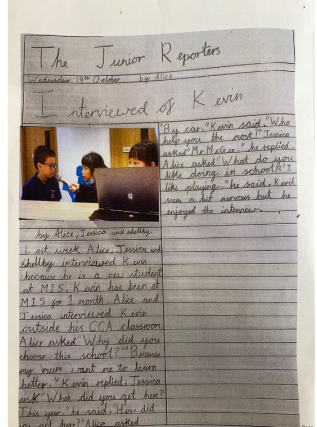 The Junior Reporters
Wednesday 19th October by Alice
Interviewed of Kevin
by Alice, Jessica and shellby
Last week Alice, Jessica and
shellby interviewed Kevin
because he is a new student
at MIS. Kevin has been at
MIS for 1 month. Alice and
Jessica interviewed Kevin
outside his CCA classroom
Alice asked "Why did you
choose this school?" "Because
my mum want me to learn
better." Kevin replied, Jessica
ask "When did you get here?"
This year "he said, "How did
you get here?" Alice asked
"By car, "Kevin said. "Who
help you the most?" Jessica
asked "Mr McGee." he replied,
Alice asked "What do you
like doing in school?" "I
like playing," he said, Kevin
seem a bit nervous but he
enjoyed the interview.